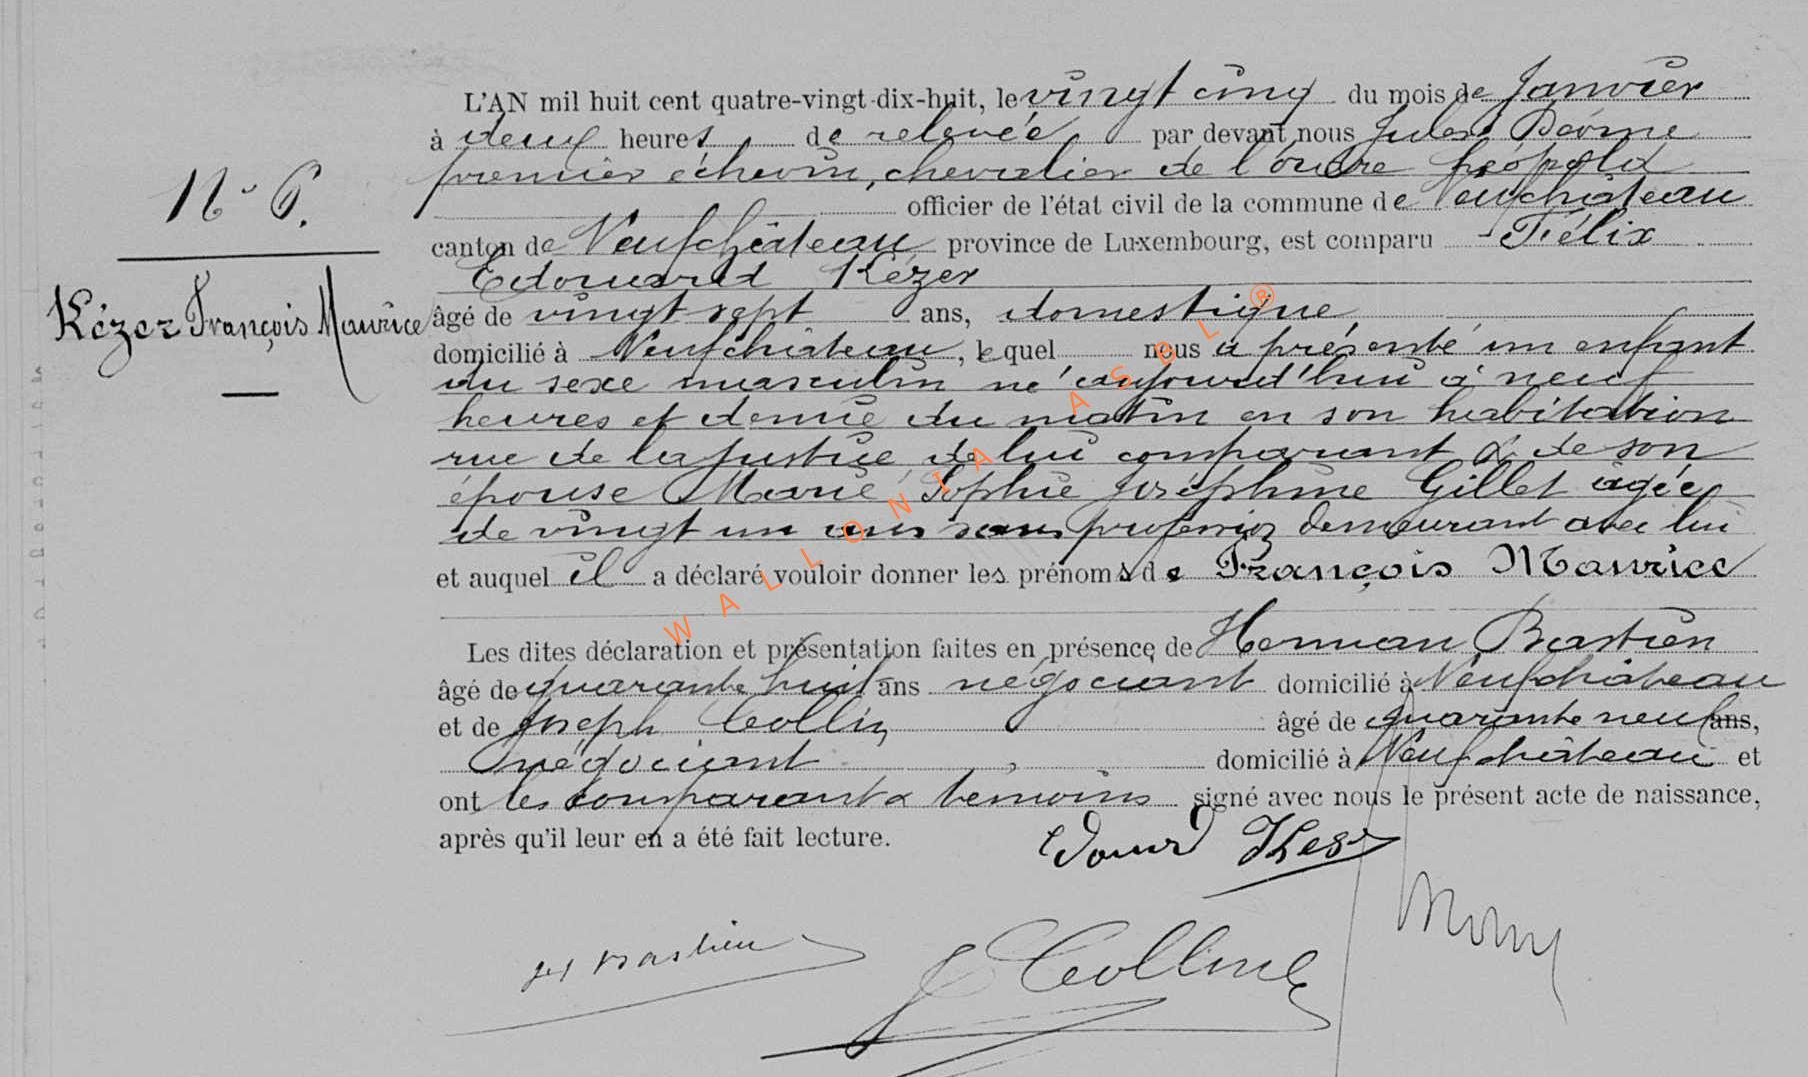 L'AN mil huit cent quatre-vingt-dix-huit, le vingt cinq du mois de Janvier
à deux heures de relevée par devant nous Jules
premier échevin, chevalier de l'ordre Léopold
N° 6.
officier de l'état civil de la commune de Neufchâteau
canton de Neufchâteau province de Luxembourg, est comparu Félix
Edouard Kézer
Kézer François Maurice
âgé de vingt sept ans, domestique
domicilié à Neufchâteau, lequel nous a présenté un enfant
du sexe masculin né aujourd'hui à neuf
heures et demie du matin en son habitation
rue de la Justice, de lui comparant & de son
épouse Marie Sophie Joséphine Gillet âgée
de vingt un ans sans profession demeurant avec lui
et auquel il a déclaré vouloir donner les prénoms de François Maurice
WALLONIA ASBL®
Les dites déclaration et présentation faites en présence de Herman Bastien
âgé de quarante huit ans négociant domicilié à Neufchâteau
et de Joseph Collin âgé de quarante neuf ans,
négociant, domicilié à Neufchâteau et
ont les comparant & témoins signé avec nous le présent acte de naissance,
après qu'il leur en a été fait lecture.
Bastien
Colline